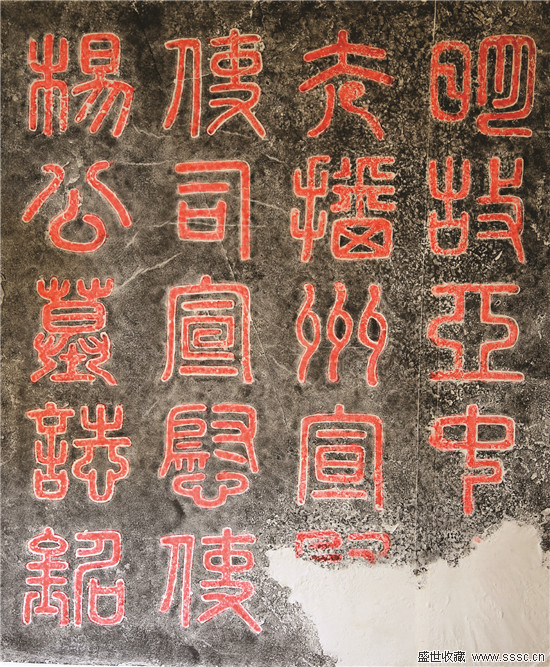 明故亞中
夫播州宣
使司宣慰使
楊公墓誌銘
盛世收藏
www.sssc.cn